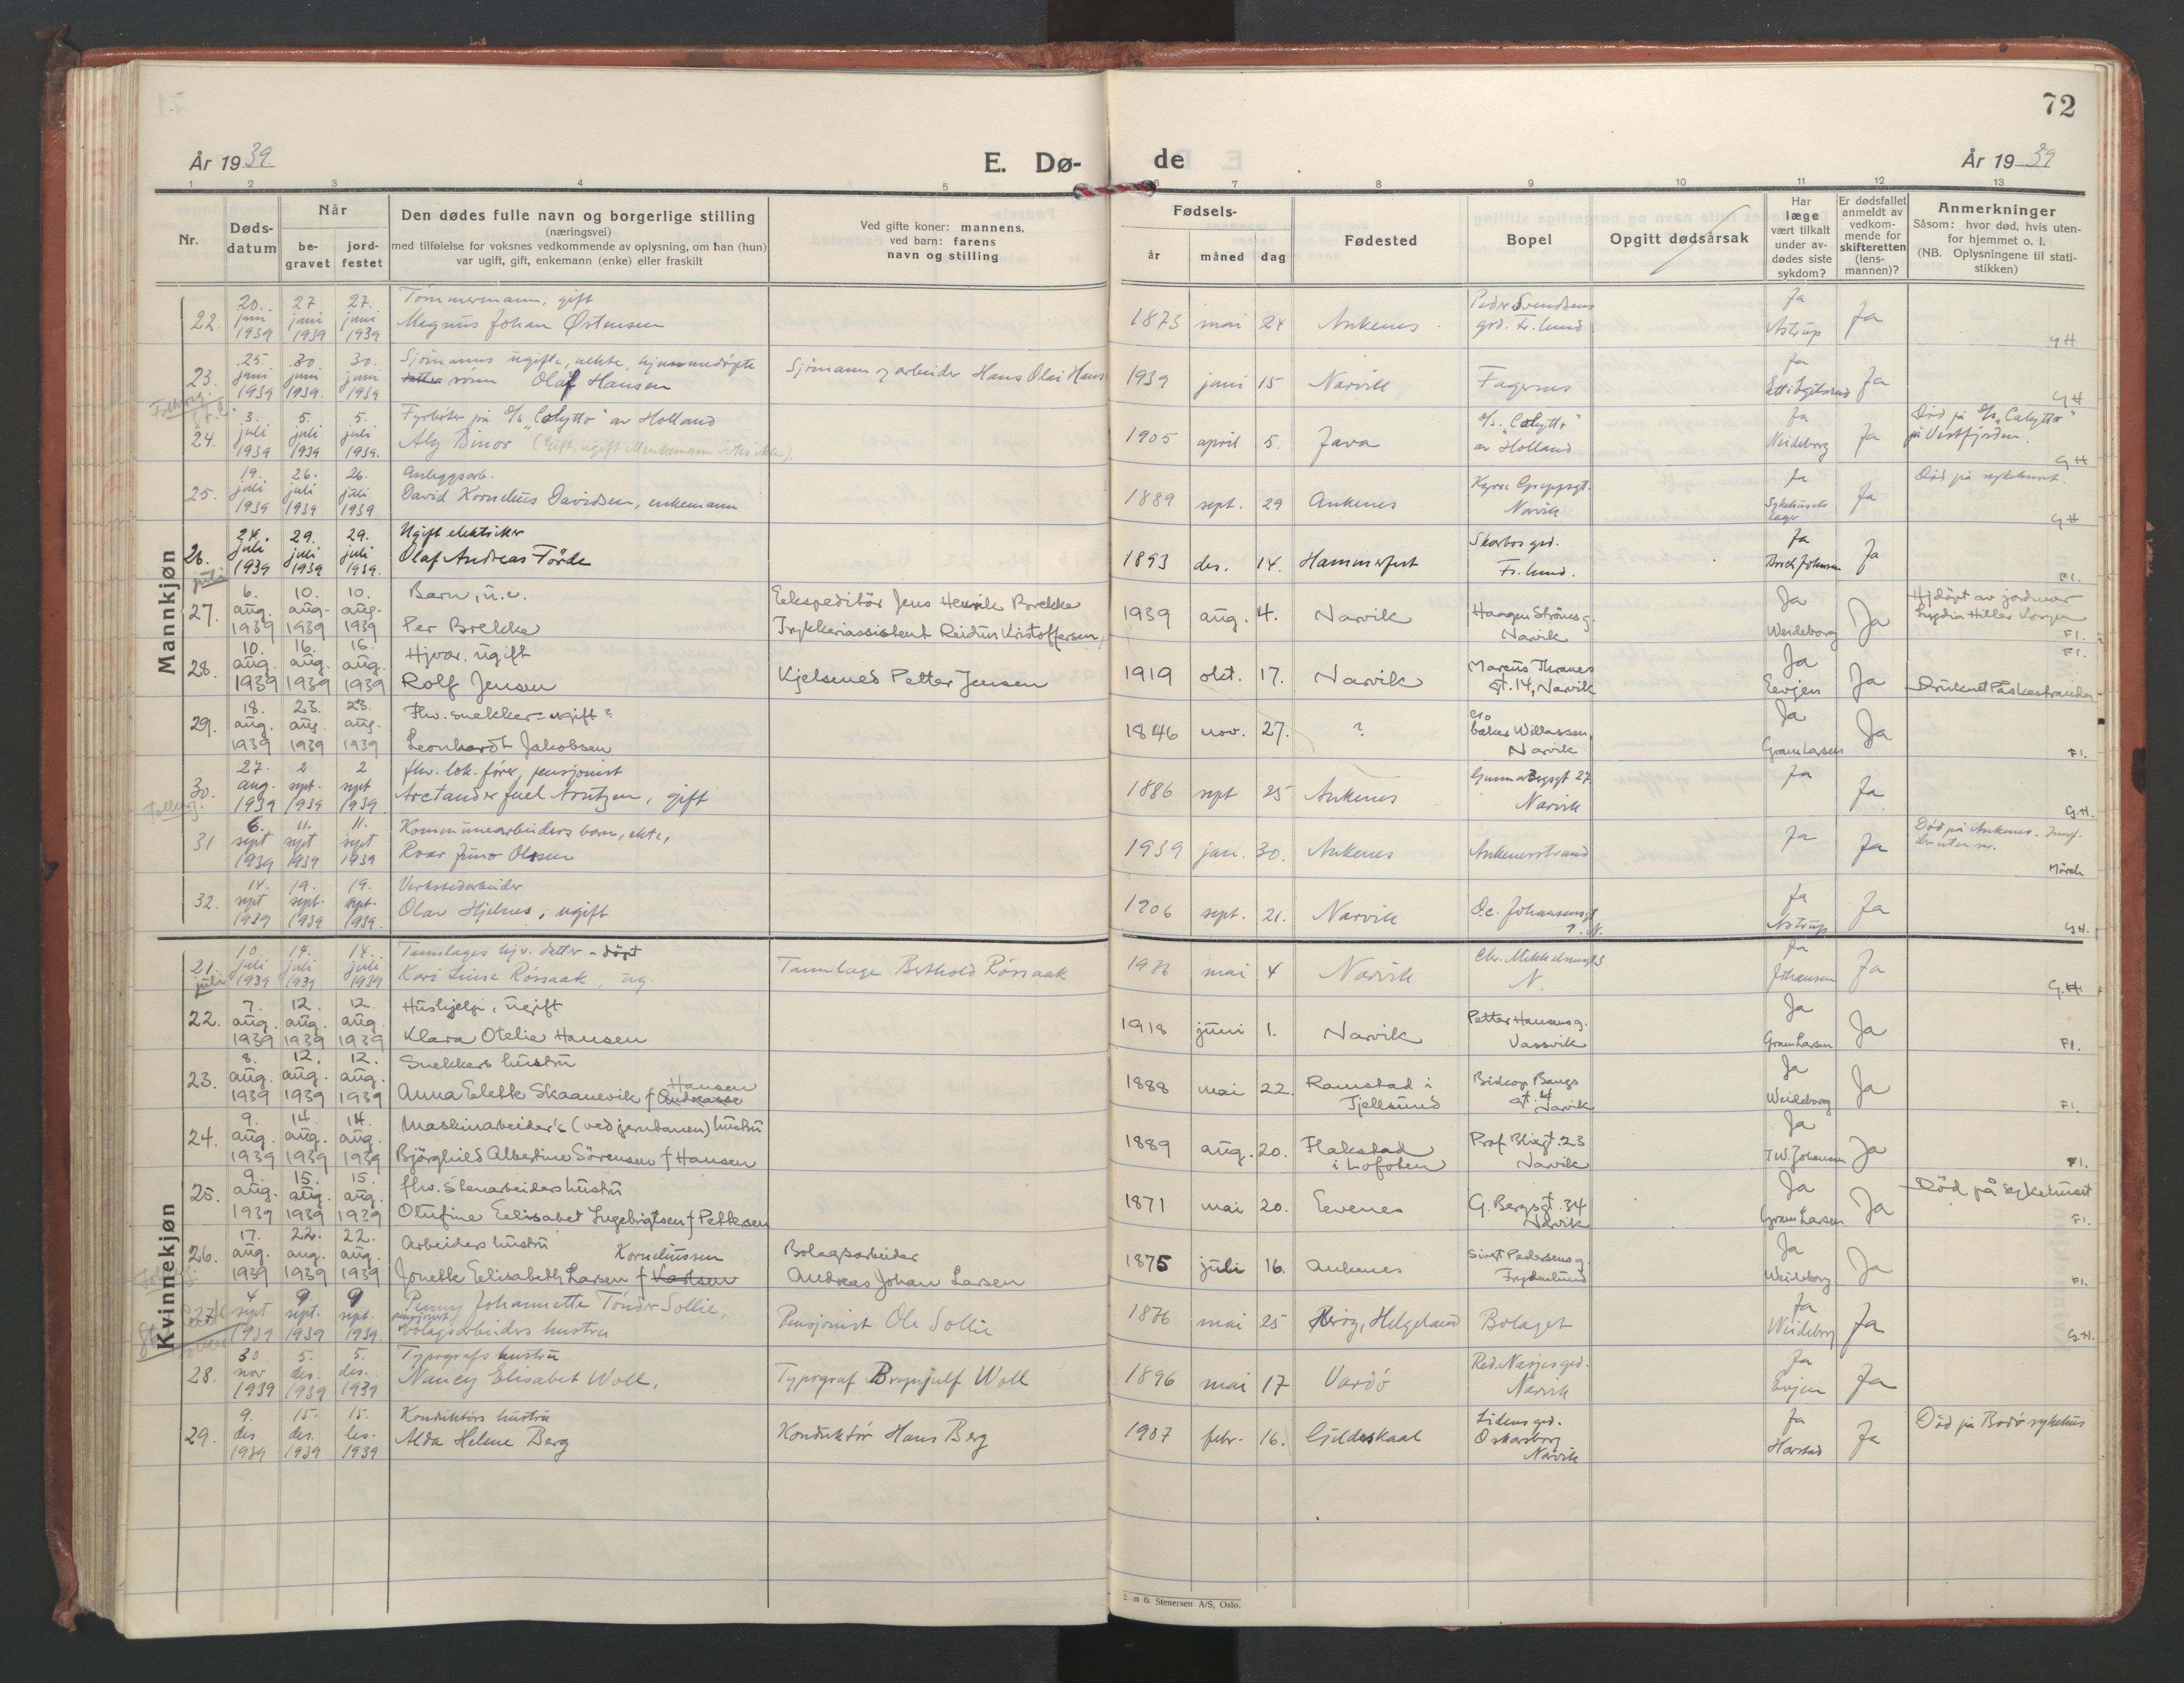 72
År 1939.
E. Dø-
de
År 1939
1 2 3 4 5 6 7 8 9 10 11 12 13
Nr.
Døds-
datum
Når
be-
gravet
jord-
festet
Den dødes fulle navn og borgerlige stilling
(næringsvei)
med tilføielse for voksnes vedkommende av oplysning, om han (hun)
var ugift, gift, enkemann (enke) eller fraskilt
Ved gifte koner: mannens,
ved barn: farens
navn og stilling
Fødsels-
år måned dag
Fødested
Bopel
Opgitt dødsårsak
Har
læge
vært tilkalt
under av-
dødes siste
sykdom?
Er dødsfallet
anmeldt av
vedkom-
mende for
skifteretten
(lens-
mannen)?
Anmerkninger
Såsom: hvor død, hvis uten-
for hjemmet o. l.
(NB. Oplysningene til stati-
stikken)
Mannkjøn
20. 27 27. Tømmermann, gift
22. juni juni juni Magnus Johan Østensen 1873 mai 24 Ankenes Peder Svendsens Ja Ja
1939 1939 1939 grd. Fr.lund Astrup G H
25. 30 30. Sjømanns ugifte, hjemmedøpte
23. juni juni juni sønn Olaf Hansen Sjømann og arbeider Hans Olai Hans 1939 juni 15 Narvik Fagernes Ja Ja
1939 1939. 1939 G H
3. 5. 5. Fyrbøter på s/s "Calytto" av Holland
24. juli juli juli Aly Binor 1905 april 5. Java s/s. "Calytto" Ja Ja Død på s/s "Calytto"
1939 1939 1939. av Holland Weideborg på Vestfjorden. G H
19. 26. 26. Anleggsarb.
25. juli juli juli David Kornelius Davidsen, enkemann 1889 sept. 29 Ankenes Narvik Ja Ja Død på sykehuset.
1939 1939 1939 Sykehusets læger G H
24. 29. 29. Ugift elektriker
26. juli juli juli Olaf Andreas Förde 1893 des. 14. Hammerfest Skarbos grd. Ja Ja
juli 1939 1939 1939. Fr.lund. F1.
6. 10. 10. Barn, u.e. Ekspeditör Jens Henrik Brekke
27. aug. aug. aug. Per Brekke Trykkeriassistent Reidun Kristoffersen, 1939 aug. 4. Narvik Haagen Strönes g. Ja Ja Hjdöpt av jordmor
1939 1939 1939 Narvik Weideborg F1.
10. 16. 16. Hjvær. ugift
28. aug. aug. aug. Rolf Jensen Kjelsmed Petter Jensen 1919 okt. 17. Narvik Marcus Thranes Ja Ja F1.
1939 1939 1939 gt. 14, Narvik Eevjen Druknet Påskestranden
18. 23. 23. Fhv. snekker - ugift?
29. aug. aug. aug. Leonhardt Jakobsen 1846 nov. 27. ? c/o baker Willassen, Ja Ja
1939 1939 1939 Narvik Gram Larsen F1.
27. 2 2 fhv. lok. fører, pensjonist
30. aug. sept. sept Arctander Juel Arntzen, gift 1886 sept 25 Ankenes Gunnar Bergsgt 27 Ja Ja
1939 1939 1939. Narvik G.H.
6. 11. 11. Kommunearbeiders barn, ekte,
31 sept sept sept Roar Juno Olsen 1939 jan. 30. Ankenes Ankenesstrand Ja Ja Død på Ankenes.
1939 1939 1939
14. 19. 19. Verkstedarbeider
32. sept sept. sept. Olav Hjelnes, ugift 1906 sept. 21. Narvik O.c. Johansensgt Ja Ja
1939 1939 1939. Astrup G.H.
Kvinnekjøn
10 14. 14. Tannlæges hjv. datter - döpt
21. juli juli juli Kari Luise Røssaak, ug. Tannlæge Berthold Røssaak mai 4 Narvik N. Ja Ja
juli 1939 1939 1939 Johansen G.H.
7. 12. 12. Hushjelp, ugift
22. aug. aug. aug. Klara Otelie Hansen 1918 juni 1. Narvik Petter Hansens g. Ja Ja
1939 1939 1939 Vassvik Gram Larsen F1.
8. 12. 12. Snekkers hustru Hansen
23. aug. aug. aug. Anna Elette Skaanevik f Andreasse 1888 mai 22. Ramstad i Biskop Bangs Ja Ja
1939 1939 1939 Tjellsund gt. 4 Narvik Weideborg F1.
9. 14. 14. Maskinarbeider's (ved jernbanen) hustru
24. aug. aug. aug. Björghild Albertine Sörensen f Hansen 1889 aug. 20. Flakstad Prof. Blixgt. 23 Ja Ja
1939 1939 1939 i Lofoten Narvik T.W. Johansen F1.
9. 15. 15. fhv. Stenarbeiders hustru
25. aug. aug. aug. Olufine Eelisabet Ingebrigtsen f Pettersen 1871 mai 20. Evenes G. Bergsgt. 34 Ja Ja Död på sykehuset
1939 1939 1939 Narvik Gram Larsen F1.
17. 22. 22. Arbeiders hustru Korneliussen Bolagsarbeider
26. aug. aug. aug. Jonette Eelisabeth Larsen f Karlsen Andreas Johan Larsen 1875 juli 16. Ankenes Sivert Pedersens g. Ja Ja
1939 1939 1939 Frydenlund Weideborg F1.
4 9 9 Penny Johannette Tønder Sollie,
27 sept sept. sept. pensjonert bolagsarbeiders hustru Pensjonist Ole Sollie 1876 mai 25 Herøy, Helgeland Bolaget Ja Ja
1939 1939 1939. Weideborg G.H.
30 5. 5. Typografs hustru
28. nov des. des. Nancy Elisabet Woll, Typograf Brynjulf Woll 1896 mai 17 Vardö Ja Ja
1939 1939 1939 Narvik Evjen
9. 15. 15. Konduktørs hustru
29. des des. des. Alda Helene Berg Konduktør Hans Berg 1907 febr. 16. Gildeskaal Lidens grd. Oskarsborg Ja Ja Död på Bodø sykehus
1939 1939 1939 Narvik Harstad
& Stenersen A/S, Oslo.